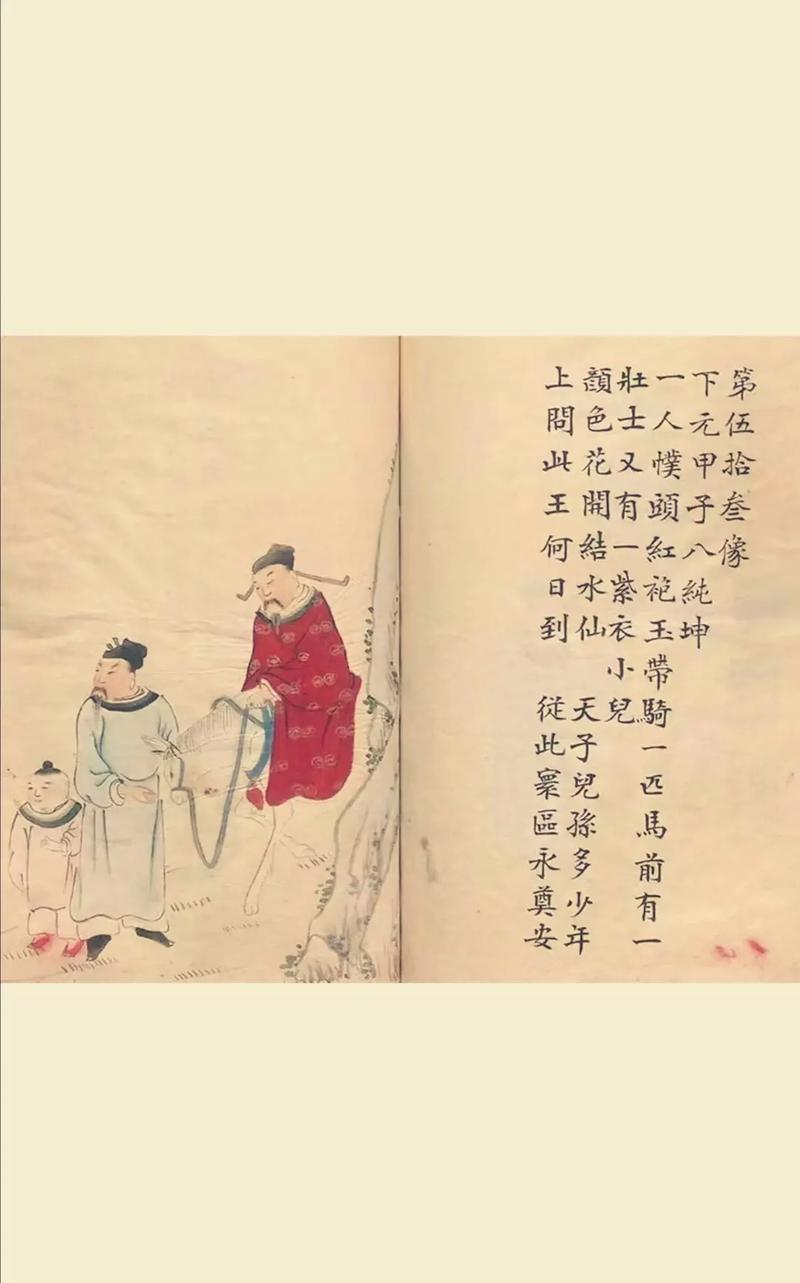 第伍拾叁像
下元甲子八純坤
一人幞頭紅袍玉帶騎一匹馬前有一
壯士又有一紫衣小兒
顏色花開結水仙　天子兒孫多少年
上問此王何日到　從此寰區永奠安